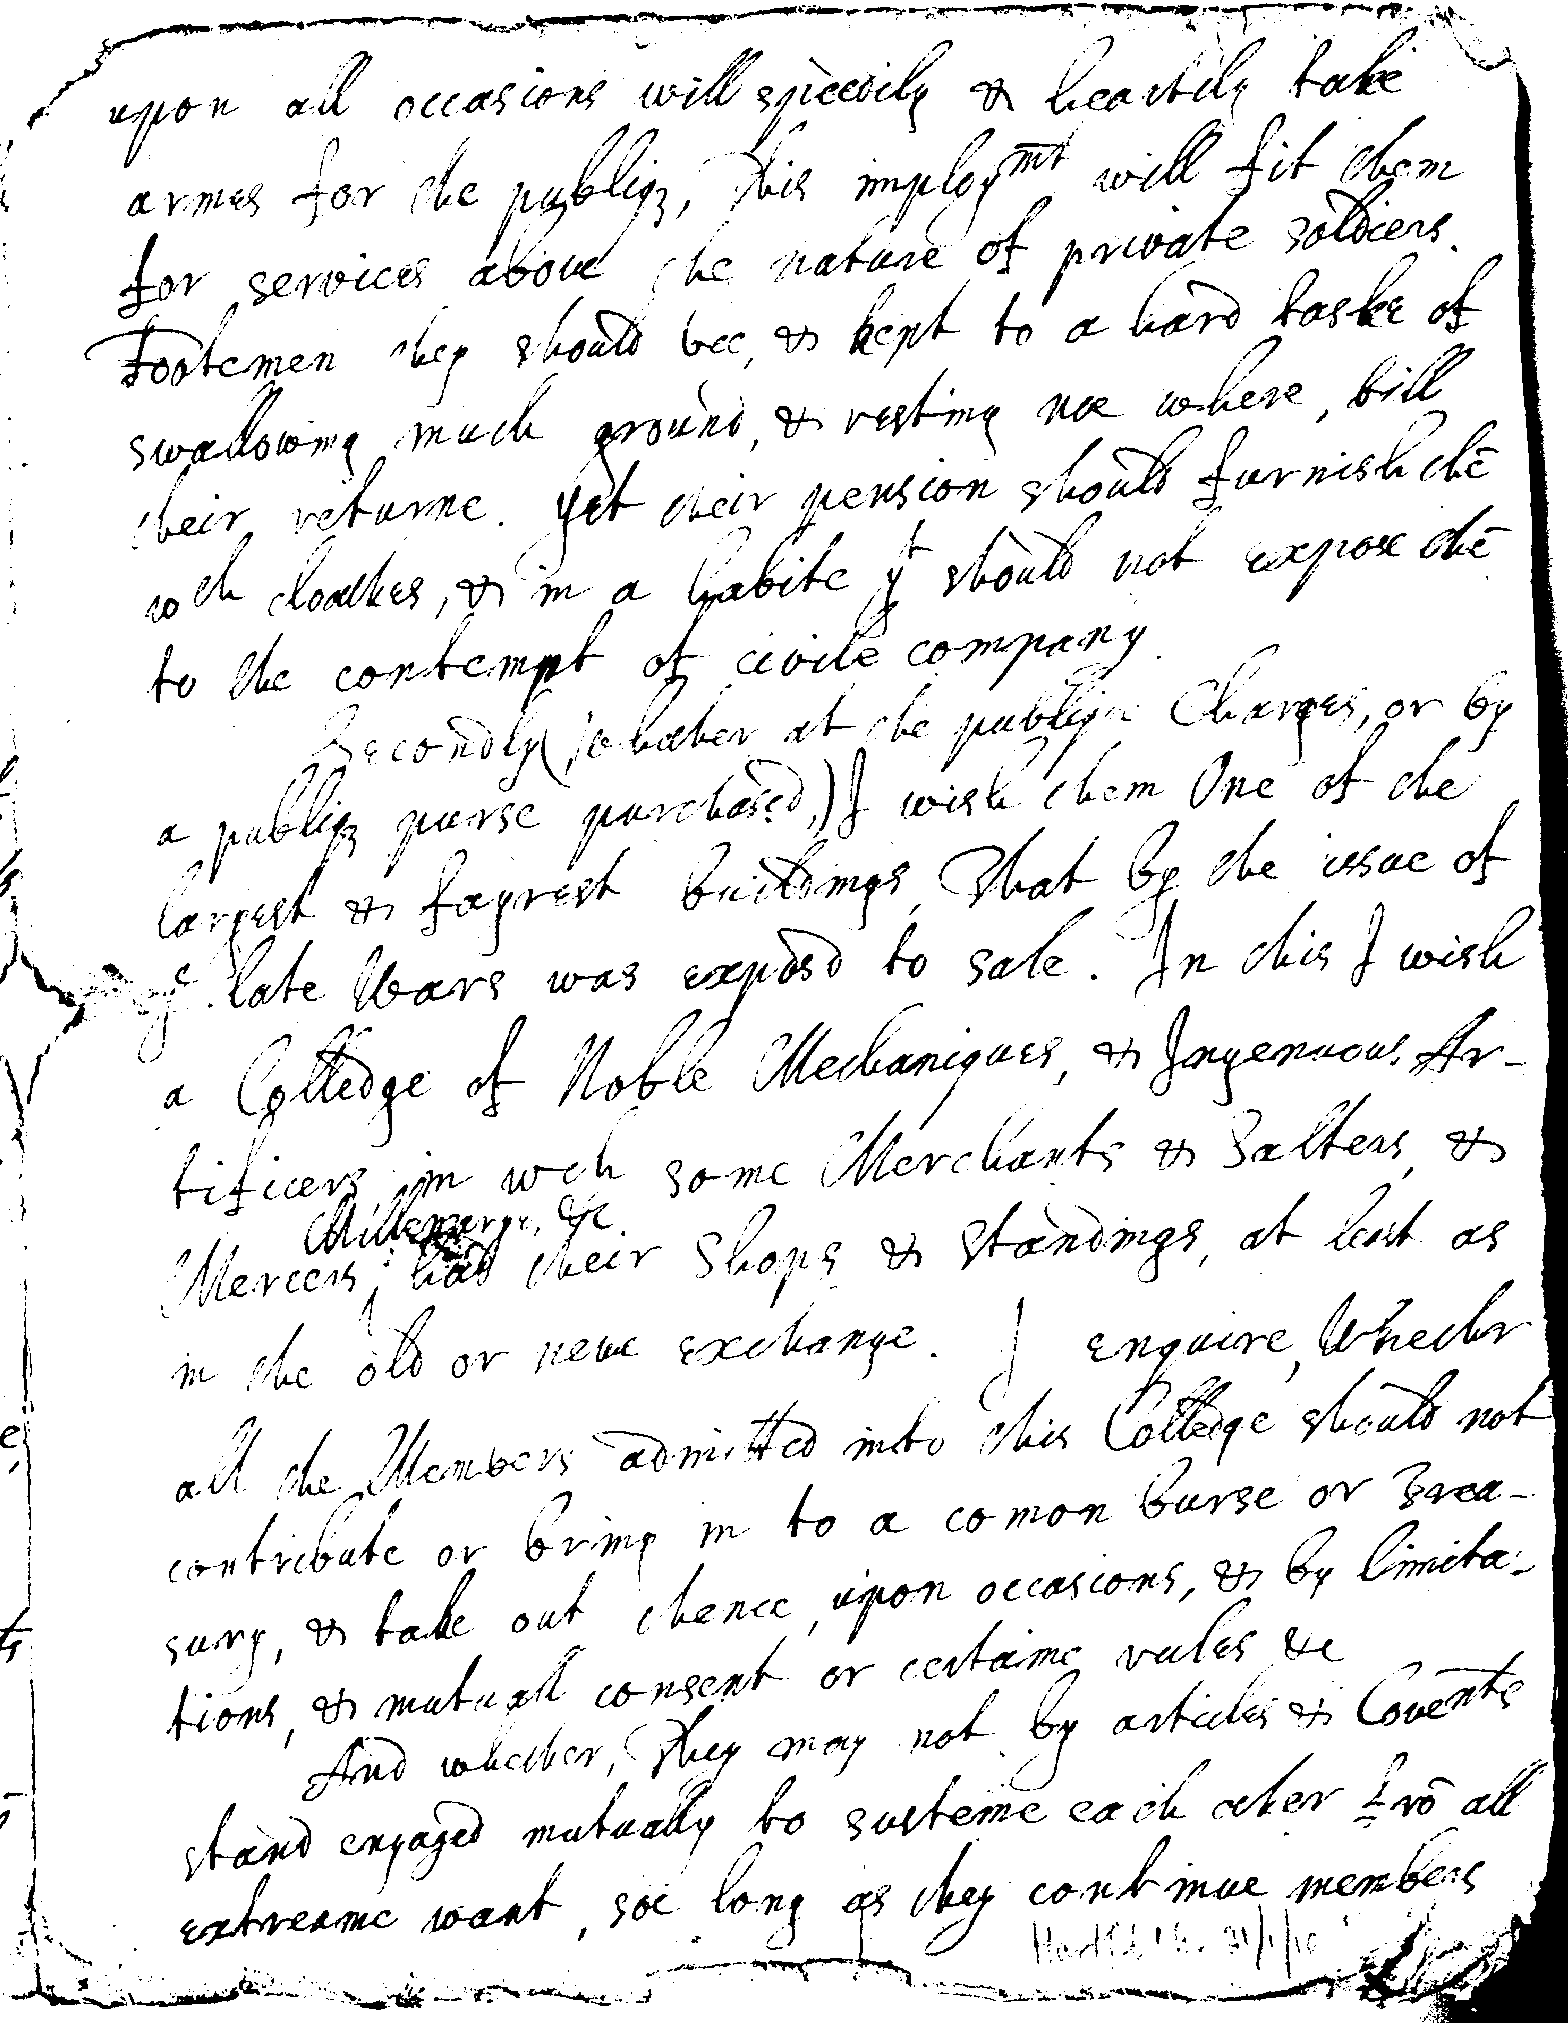 upon all occasions will speedily & heartily take
armes for the publiq, This imploymt will fit them
for services above the nature of private soldiers.
Footemen they should bee, & kept to a hard taske of
swallowing much ground, & resting noe where, till
their returne. Yet their pension should furnish thē
wth cloathes, & in a habite yt should not expose thē
to the contempt of civile company.
Secondly (whether at the publique Charges, or by
a publiq purse purchased,) I wish them One of the
largest & fayrest buildings, That by the issue of
ye late Wars was exposd to sale. In this I wish
a Colledge of Noble Mechaniques, & Ingenuous Ar-
tificers, in wch some Merchants & Salters, &
Millenarys, &c.
Mercers, had their Shops & standings, at least as
in the old or newe exchange. I enquire, Whether
all the Members admitted into this Colledge should not
contribute or bring in to a comon Burse or Trea-
sury, & take out thence, upon occasions, & by limita-
tions, & mutuall consent or certaine rules &c
And whether, They may not by articles & Covents
stand engaged mutually to susteine each other frō all
extreame want, soe long as they continue members